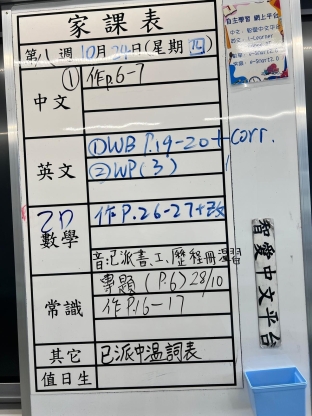 家課表
第八週10月24日(星期四)
中文
① 作p.6-7
英文
① WB P.19-20+corr.
② WP(3)
數學
作P.26-27+改
音:已派書、工、歷程冊溫習
常識
專題 (P.6) 28/10
作P.16-17
其它
已派中溫詞表
值日生
自主學習 網上平台
智愛中文平台